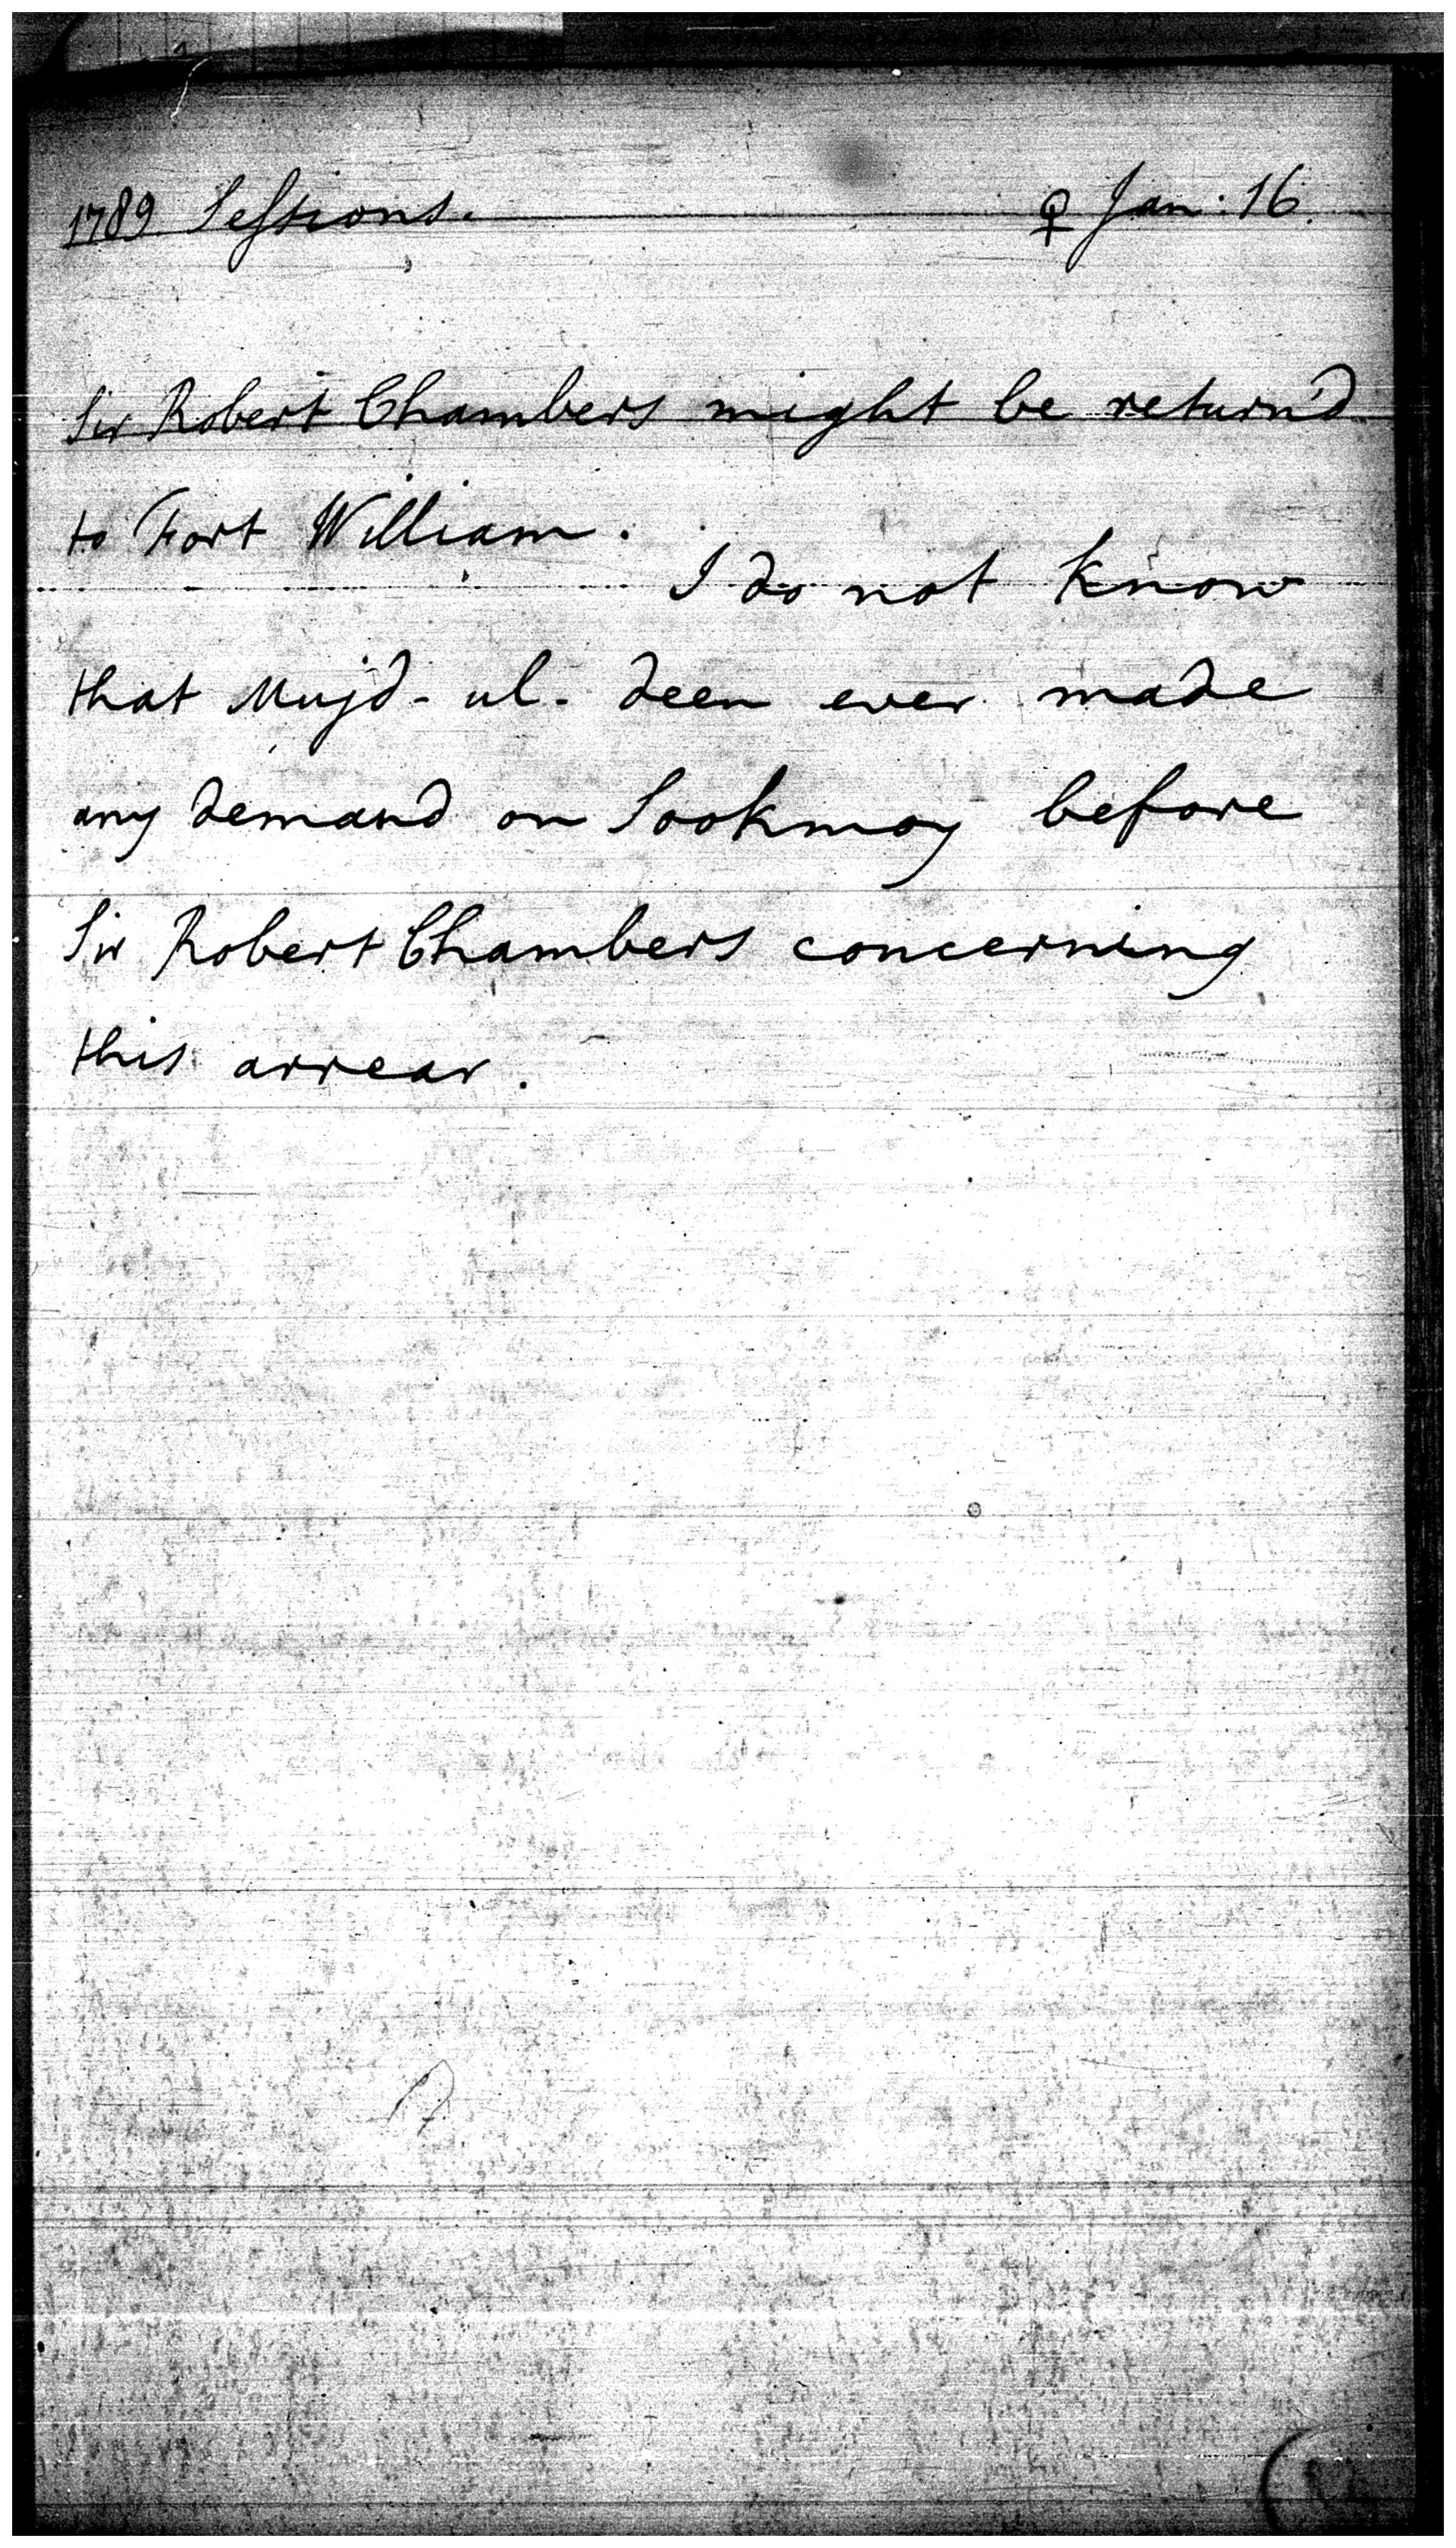 1789 Sessions. ♀ Jan: 16.
Sir Robert Chambers might be return'd
to Fort William.
I do not know
that Mujd-ul-deen ever made
any demand on Sookmoy before
Sir Robert Chambers concerning
this arrear.